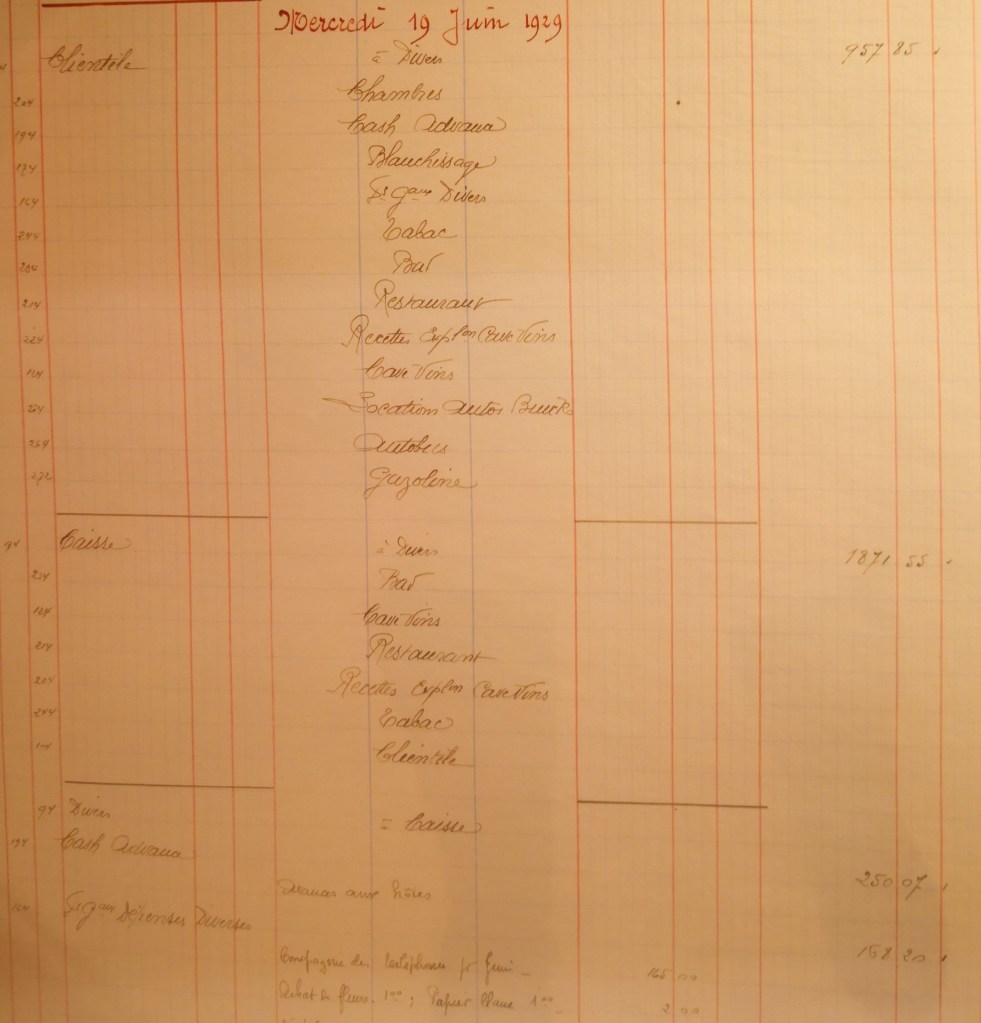 Mercredi 19 Juin 1929
Clientèle à Divers 957 85
204 Chambres
194 Cash Advance
134 Blanchissage
164 Divers
244 Tabac
204 Bar
214 Restaurant
224 Recettes Explon Cave Vins
184 Cave Vins
254 Locations Autos Buick
264 Autobus
272 Gazoline
94 Caisse à Divers 1871 55
234 Bar
184 Cave Vins
214 Restaurant
204 Recettes Explon Cave Vins
244 Tabac
Clientèle
94 Divers = Caisse
194 Cash Advance
Avances aux hôtes 250 07
164 Dépenses Diverses
168 20
Compagnie des téléphones pr Juin 165 00
Achat de fleurs. 1 00 ; Papier blanc 1 00 2 00